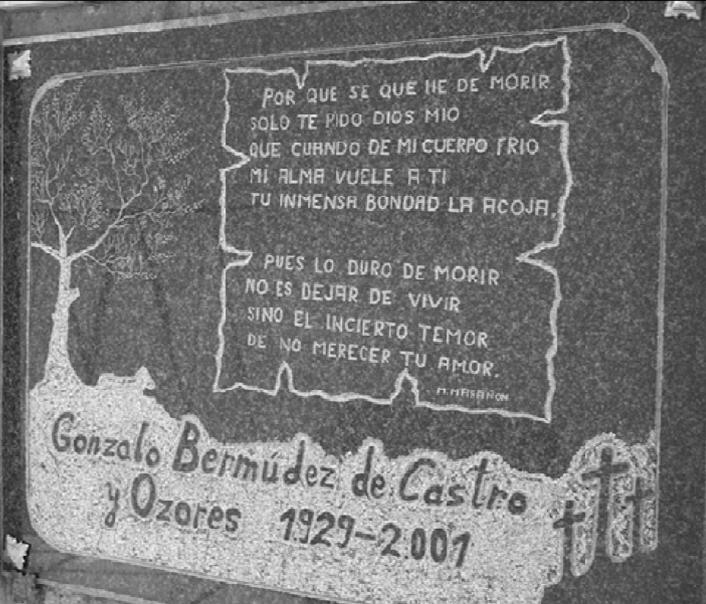 POR QUE SE QUE HE DE MORIR
SOLO TE PIDO DIOS MIO
QUE CUANDO DE MI CUERPO FRIO
MI ALMA VUELE A TI
TU INMENSA BONDAD LA ACOJA.
PUES LO DURO DE MORIR
NO ES DEJAR DE VIVIR
SINO EL INCIERTO TEMOR
DE NO MERECER TU AMOR.
M. MARAÑON
Gonzalo Bermúdez de Castro
y Ozores 1929-2.001